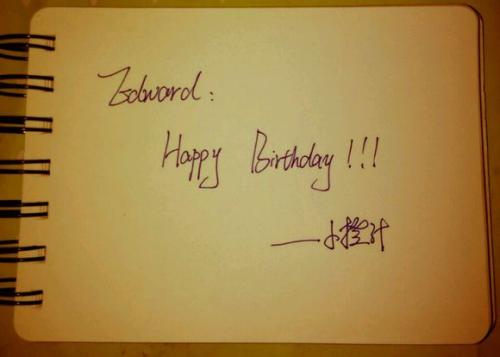 Edward:
Happy Birthday!!!
——小程汁